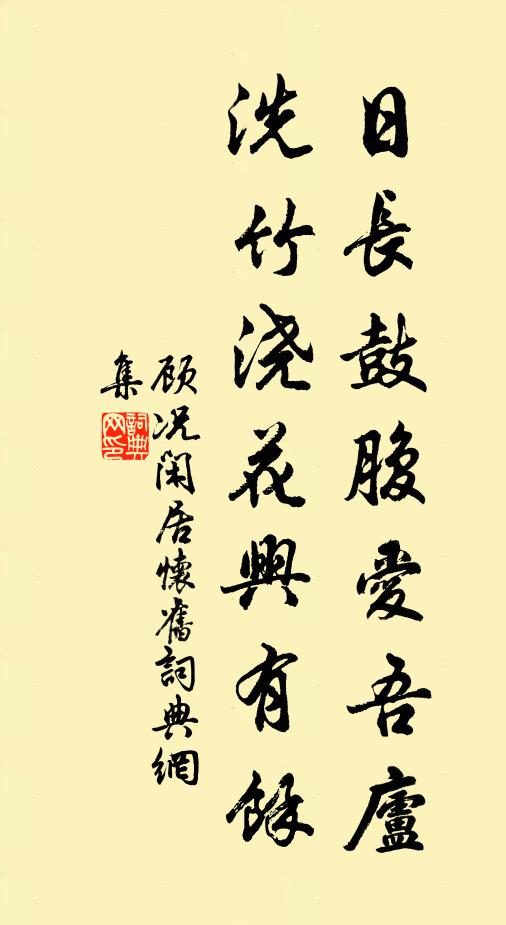 日長鼓腹愛吾廬
洗竹浇花興有餘
顾况闲居懷舊詞典網
集
詞典
网印